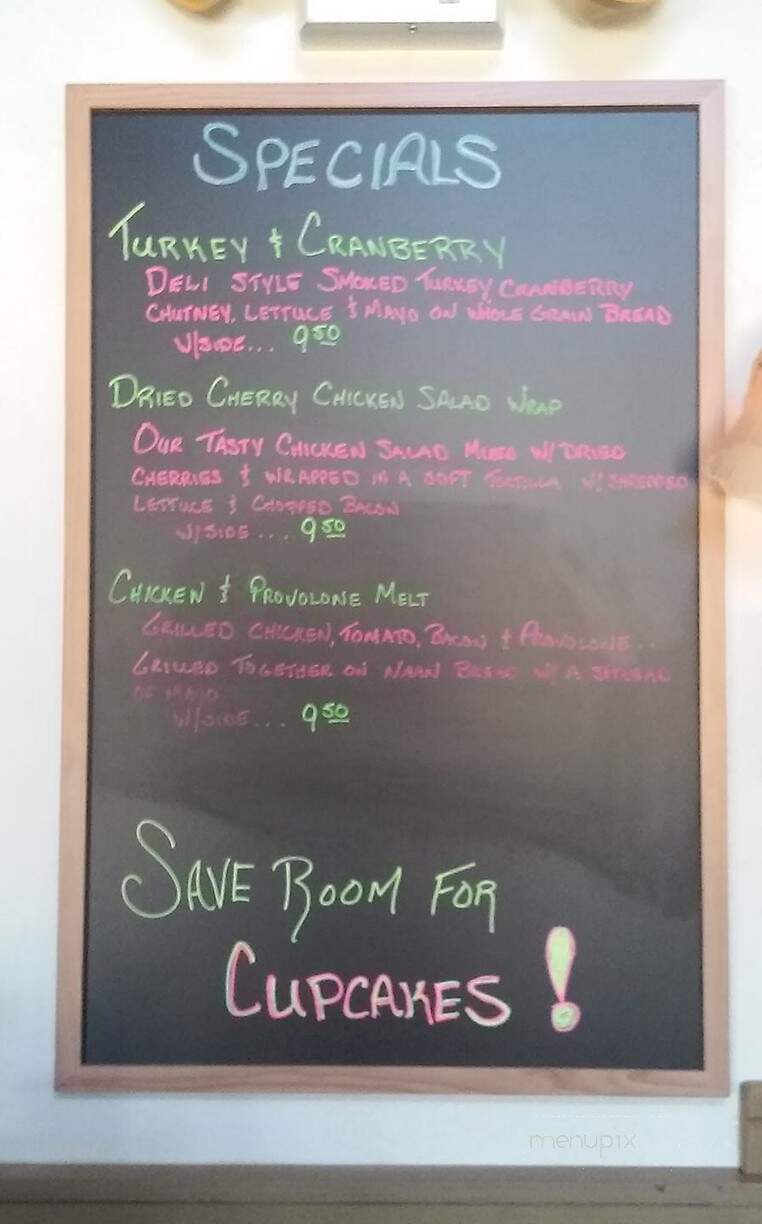 SPECIALS
TURKEY & CRANBERRY
DELI STYLE SMOKED TURKEY, CRANBERRY
CHUTNEY, LETTUCE & MAYO ON WHOLE GRAIN BREAD
W/SIDE... 9.50
DRIED CHERRY CHICKEN SALAD WRAP
OUR TASTY CHICKEN SALAD MIXED W/ DRIED
CHERRIES & WRAPPED IN A SOFT TORTILLA W/ SHREDDED
LETTUCE & CHOPPED BACON
W/SIDE.... 9.50
CHICKEN & PROVOLONE MELT
GRILLED CHICKEN, TOMATO, BACON & PROVOLONE...
GRILLED TOGETHER ON NAAN BREAD W/ A SPREAD
OF MAYO
W/SIDE... 9.50
SAVE ROOM FOR
CUPCAKES!
menupix